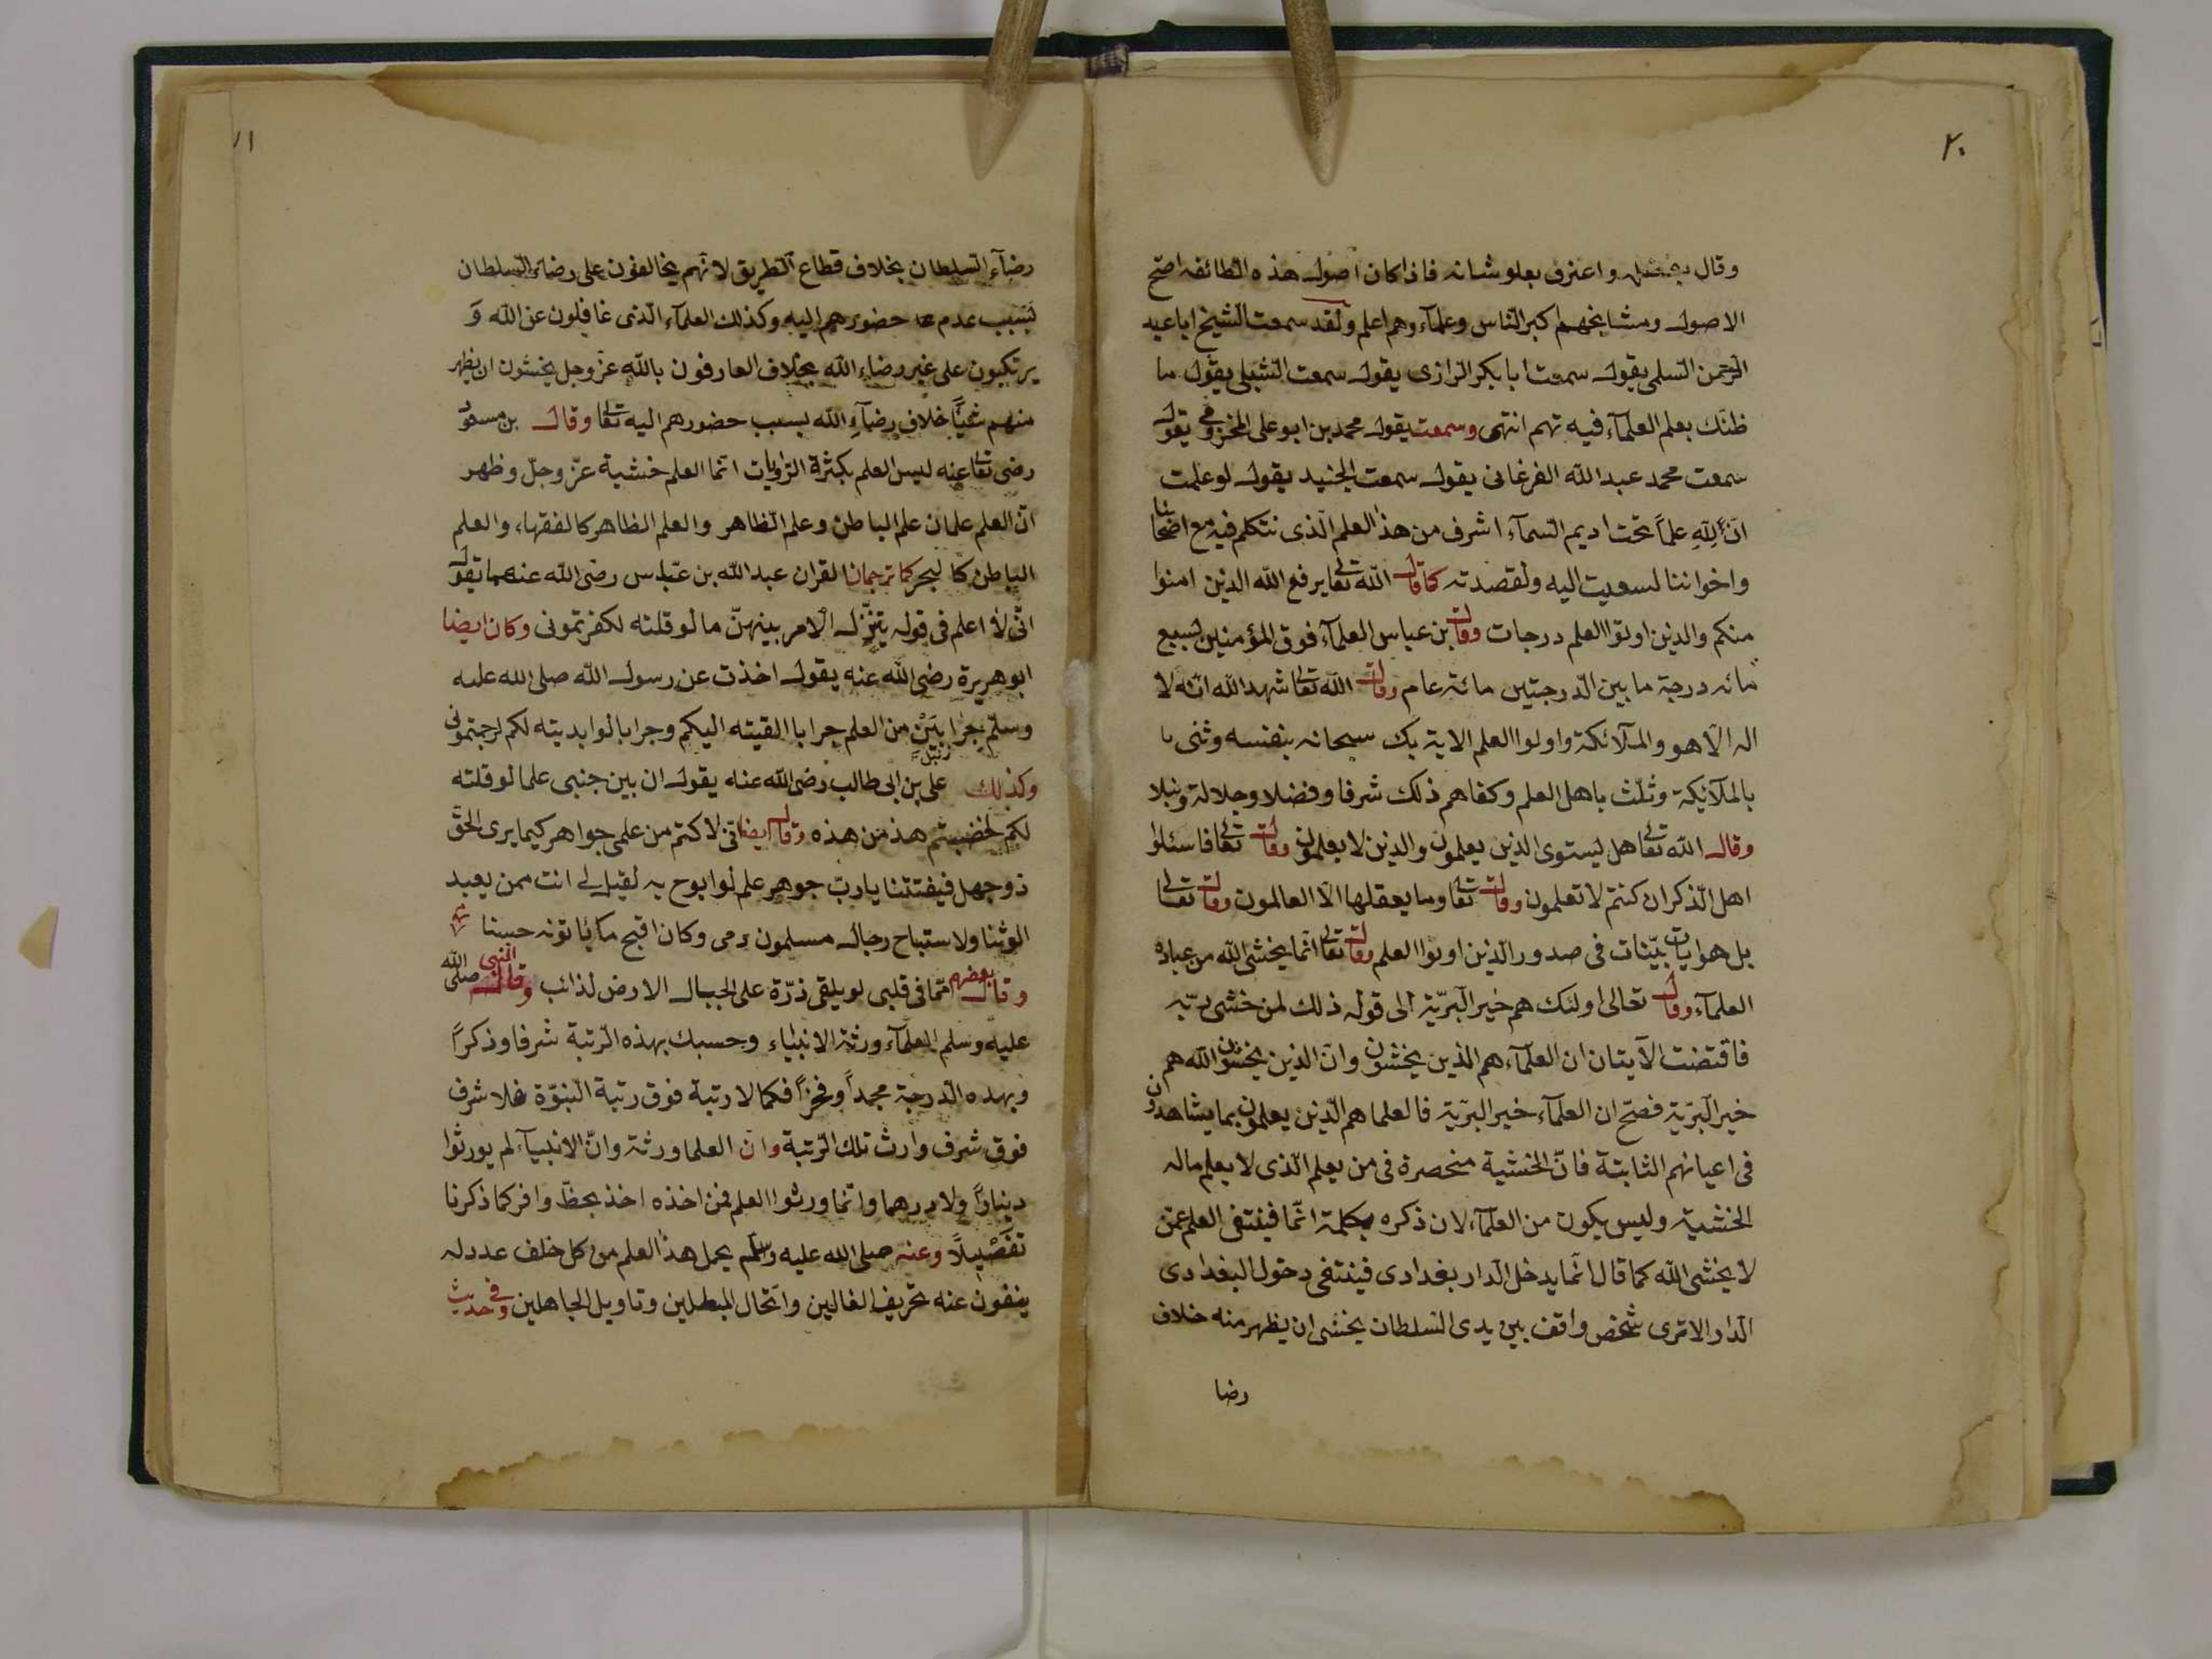 ٢٠
وقال بفضله واعترف بعلو شانه فاذا كان اصول هذه الطائفه اصح
الاصول ومشايخهم اكبر الناس وعلمآء وهم اعلم ولقد سمعت الشيخ ابا عبد
الرحمن السلمى يقول سمعت ابا بكر الرازى يقول سمعت الشبلى يقول ما
ظنك بعلم العلمآء فيه تهم انتهى وسمعت يقول محمد بن ابو على المخزومى يقول
سمعت محمد عبد الله الفرغانى يقول سمعت الجنيد يقول لو علمت
انّ لِلّهِ علماً تحت اديم السمآء اشرف من هذا العلم الذى نتكلم فيه مع اصحابنا
واخواننا لسعيت اليه ولقصدته كما قال الله تعالى يرفع الله الذين امنوا
منكم والذين اوتوا العلم درجات وقال بن عباس العلمآء فوق المؤمنين بسبع
مائه درجة ما بين الدرجتين مائة عام وقال الله تعالى شهد الله انّه لا
اله الّا هو والملآئكة واولوا العلم الاية بك سبحانه بنفسه وثنى با
بالملآئيكة وثلّث باهل العلم وكفاهم ذلك شرفا وفضلا وجلالة ونبلا
وقال الله تعالى هل يستوى الذين يعلمون والذين لا يعلمون وقال تعالى فاسئلوا
اهل الذكر ان كنتم لا تعلمون وقال تعالى وما يعقلها الّا العالمون وقال تعالى
بل هو ايات بيّنات فى صدور الذين اوتوا العلم وقال تعالى انّما يخشى الله من عباده
العلمآء وقال تعالى اولئك هم خير البريّة الى قوله ذلك لمن خشى ربّه
فاقتضت الآيتان ان العلمآء هم الذين يخشون وانّ الذين يخشون الله هم
خير البريّة فصح ان العلمآء خير البريّة فالعلما هم الذين يعلمون بما يشاهدون
فى اعيانهم الثابتة فانّ الخشية منحصرة فى من يعلم الذى لا يعلم ماله
الخشية وليس يكون من العلمآء لان ذكره بكلمة انّما فينتفى العلم عمّن
لا يخشى الله كما قال انّما يدخل الدار بغدادى فينتفى دخول البغدادى
الدار الا ترى شخص واقف بين يدى السلطان يخشى ان يظهر منه خلاف
رضا
رضآء السلطان بخلاف قطاع الطريق لانهم يخالفون على رضاء السلطان
بسبب عدم حضورهم اليه وكذلك العلمآء الذى غافلون عن الله وَ
يرتكبون على غير رضاء الله بخلاف العارفون بالله عزّ وجل يخشون ان يظهر
منهم شيئاً خلاف رضآءِ الله بسبب حضورهم اليه تعالى وقال بن مسعود
رضى تعالى عنه ليس العلم بكثرة الرّوايات انّما العلم خشية عزّ وجلّ وظهر
انّ العلم علمان علم الباطن وعلم الظاهر والعلم الظاهر كالفقهاء والعلم
الباطن كالبحر كما ترجمان القران عبد الله بن عبّاس رضى الله عنهما تقول
انّى لا اعلم فى قوله يتنزّل الامر بينهنّ ما لو قلته لكفرتمونى وكان ايضا
ابو هريرة رضى الله عنه يقول اخذت عن رسول الله صلى الله عليه
وسلم جرابَيْنِ من العلم جرابا القيته اليكم وجرابا لو ابديته لكم لرجمتمونى
وكذلك على بن ابى طالب رضى الله عنه يقول ان بين جنبى علما لو قلته
لكم لخضبتم هذ من هذه وقال ايضا انّى لاكتم من علمى جواهر كيما يرى الحقّ
ذو جهل فيفتتنا يا ربّ جوهر علم لو ابوح به لقيل لى انت ممن يعبد
الوثنا ولاستباح رجال مسلمون دمى وكان اقبح ما ياتونه حسنا
وقال بعضهم ممّا فى قلبى لو يلقى ذرّة على الجبال الارض لذائب وقال النبى صلى الله
عليه وسلم العلمآء ورثة الانبياء وحسبك بهذه الرتبة شرفا وذكراً
وبهذه الدرجة مجداً وفخراً فكما لا رتبة فوق رتبة النبوّة فلا شرف
فوق شرف وارث تلك الرتبة وان العلما ورثة وانّ الانبيآء لم يورثوا
ديناراً ولا درهما وانّما ورثوا العلم فمن اخذه اخذ بحظّ وافر كما ذكرنا
تَفْصْيلاً وعنه صلى الله عليه وسلم يحمل هذا العلم من كل خلف عدد له
ينفون عنه تحريف الغالين وانتحال المبطلين وتاويل الجاهلين وفى حديث